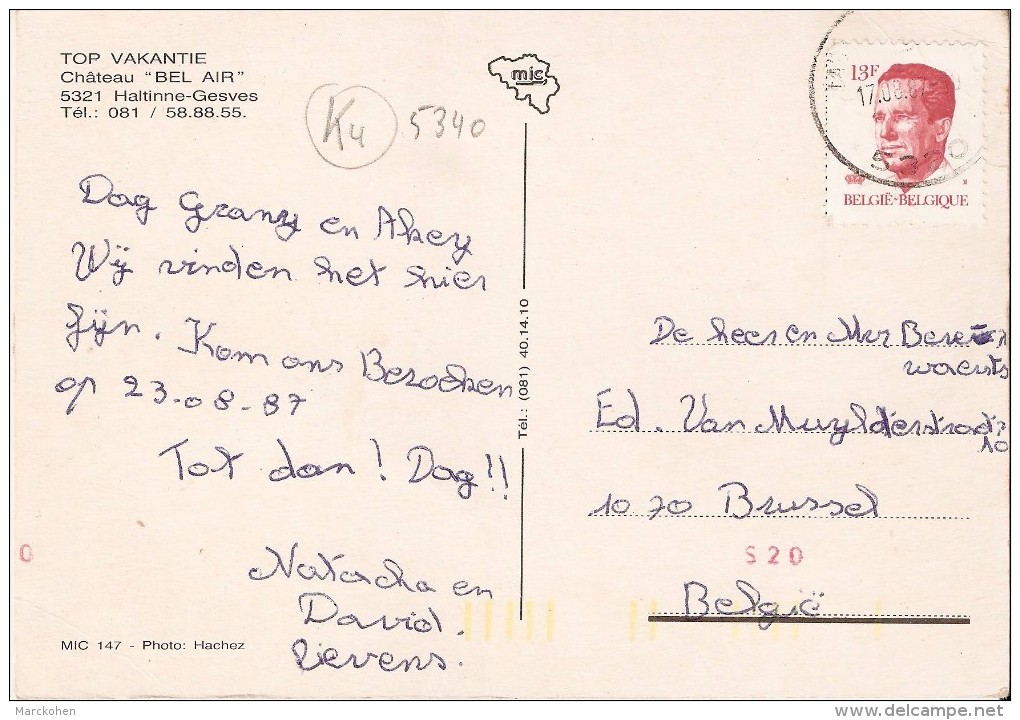 TOP VAKANTIE
Château "BEL AIR"
5321 Haltinne-Gesves
Tél.: 081 / 58.88.55.
K4
5340
mic
13F
17.08.87
5320
BELGIË-BELGIQUE
Dag Grany en Akey
Wij vinden het hier
fijn. Kom ons Beroeken
op 23-08-87
Tot dan! Dag!!
Natacha en
David.
Lievens.
MIC 147 - Photo: Hachez
Tél.: (081) 40.14.10
De heer en Mvr
waerts
Ed. Van Muylderstraat
10
1070 Brussel
S20
België
0
Marckohen
www.delcampe.net